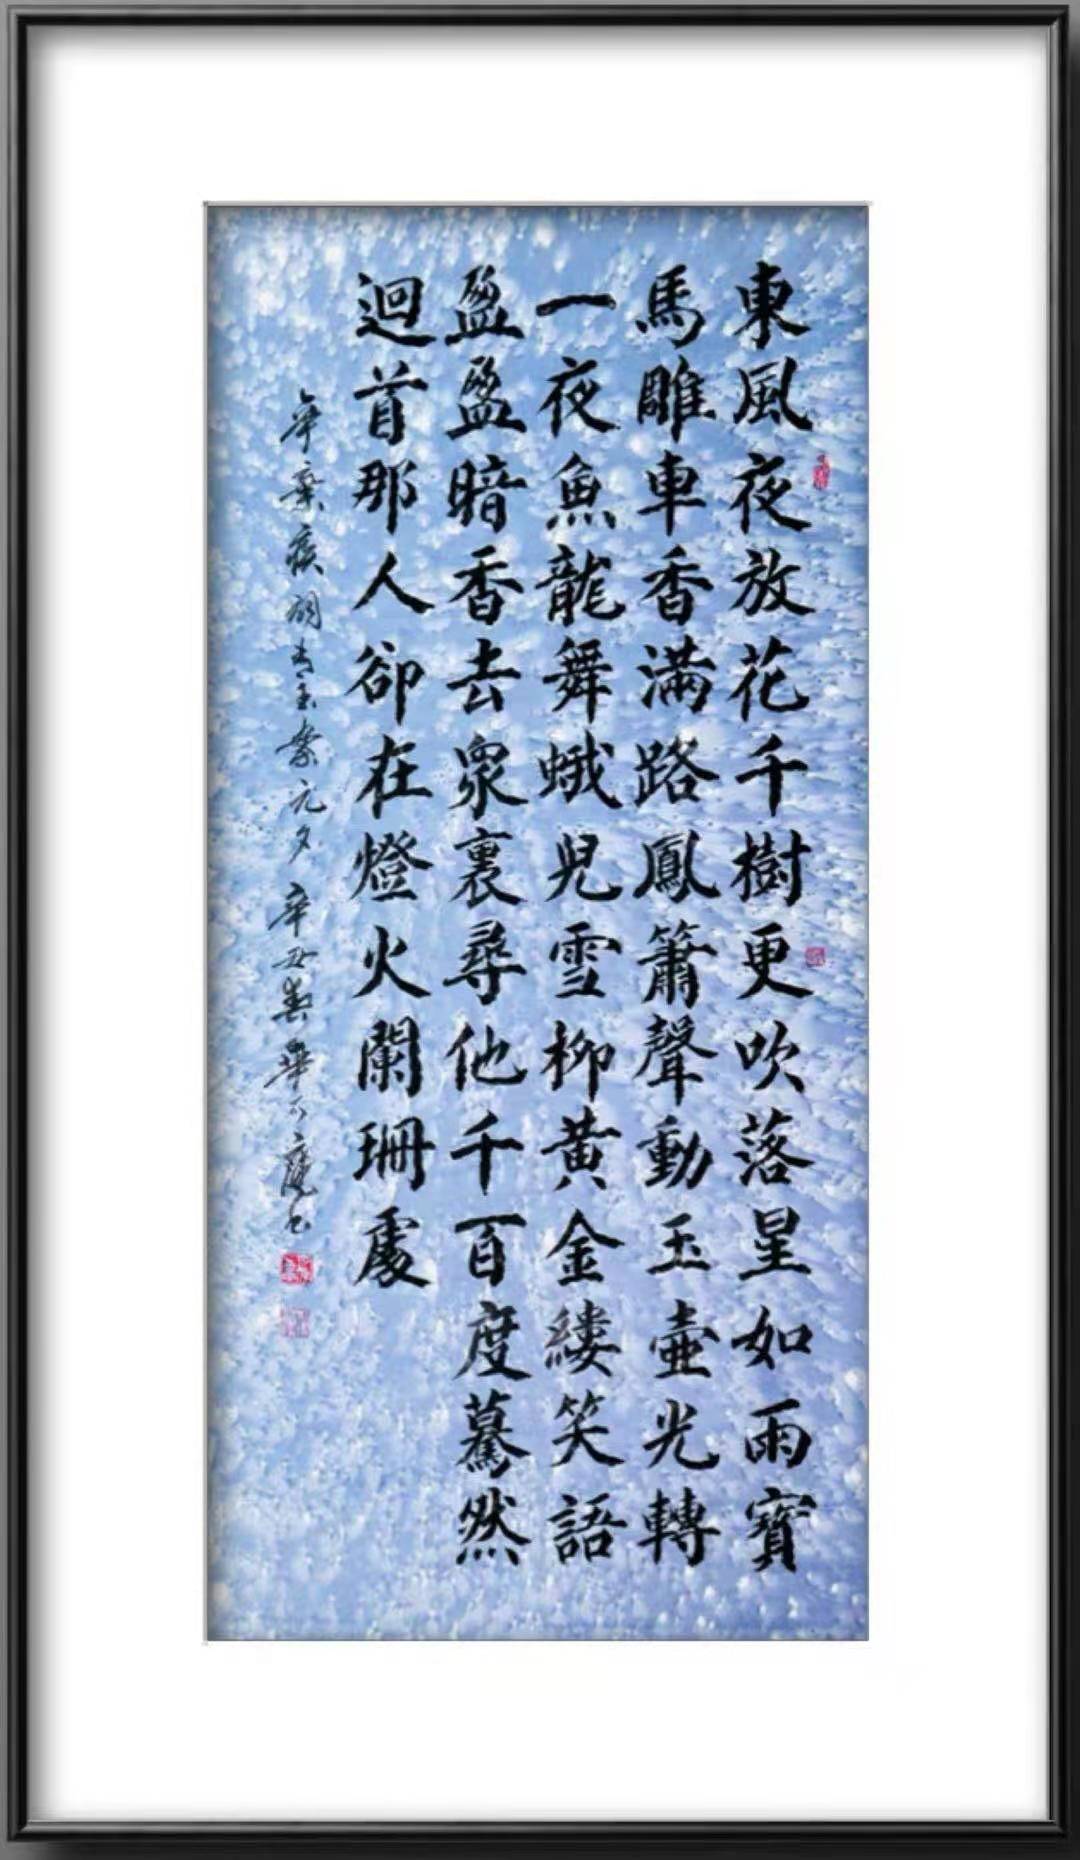 東風夜放花千樹更吹落星如雨寶
馬雕車香滿路鳳簫聲動玉壺光轉
一夜魚龍舞蛾兒雪柳黃金縷笑語
盈盈暗香去衆裏尋他千百度驀然
迴首那人卻在燈火闌珊處
辛棄疾詞青玉案元夕 辛丑春華